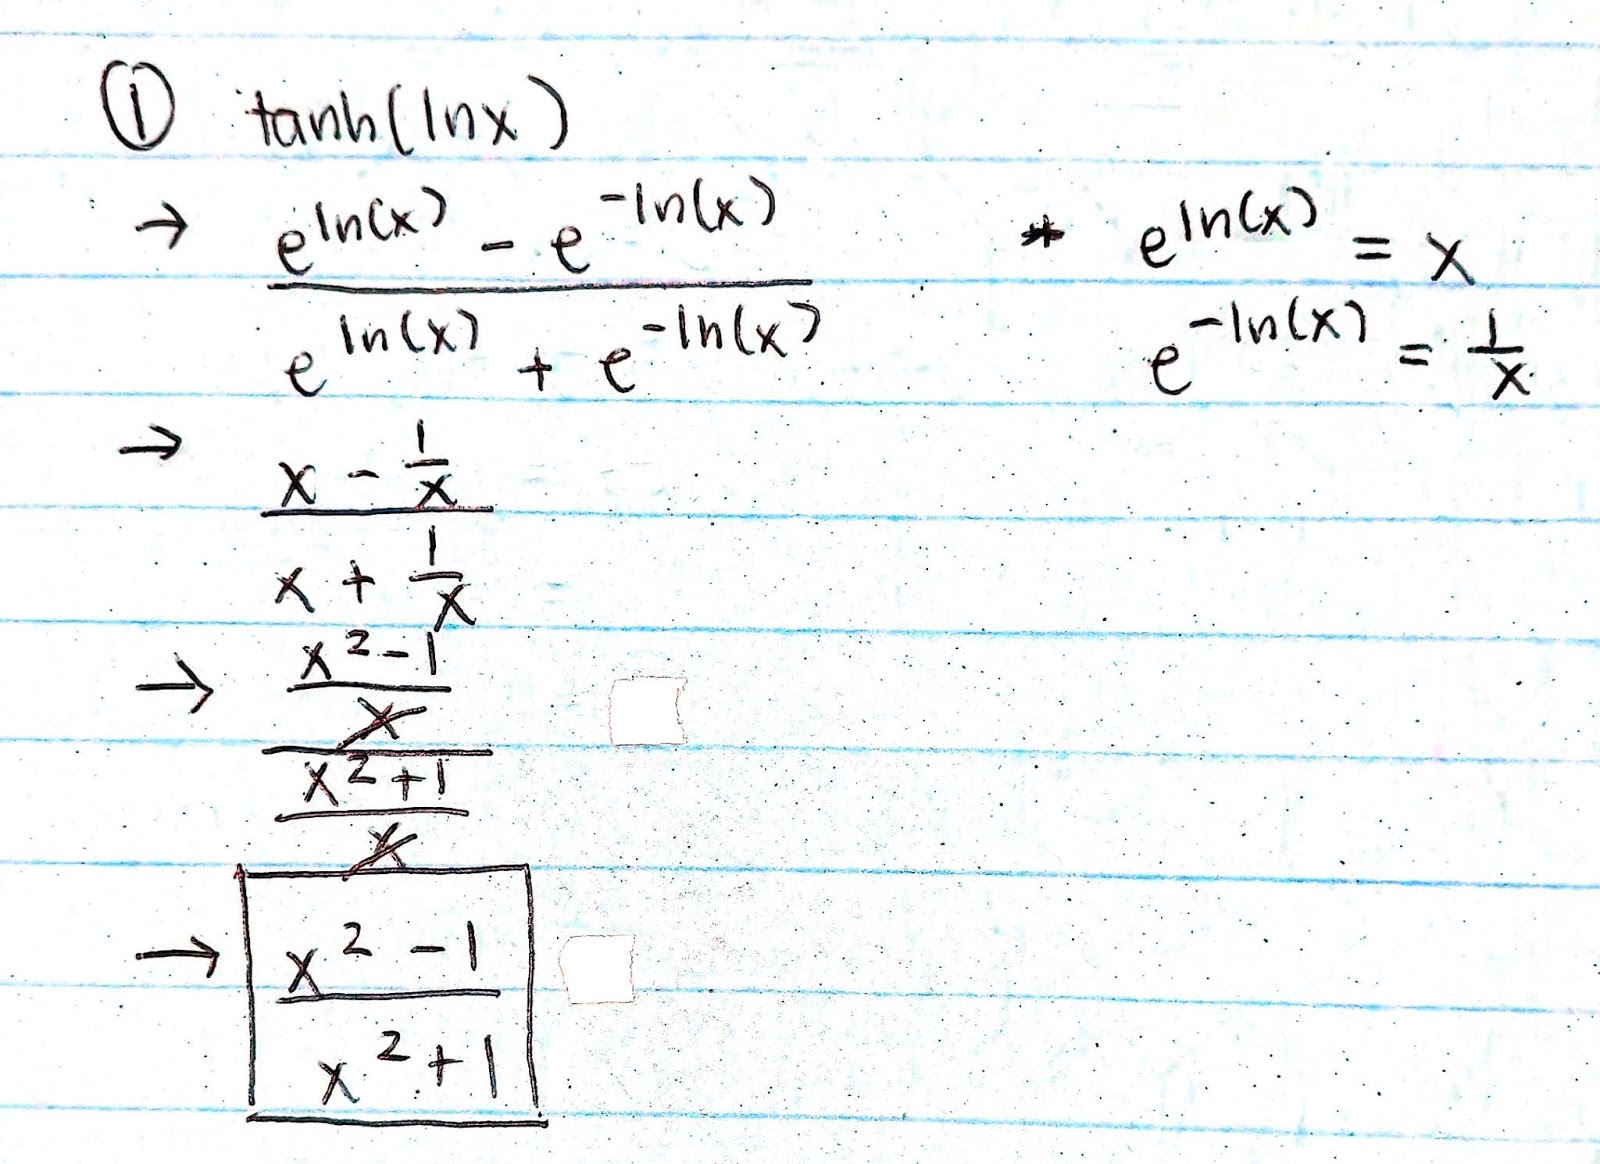 ① tanh(lnx)
→ e^ln(x) - e^-ln(x) * e^ln(x) = x
e^ln(x) + e^-ln(x) e^-ln(x) = 1/x
→ x - 1/x
x + 1/x
→ x² - 1
x
x² + 1
x
→ x² - 1
x² + 1